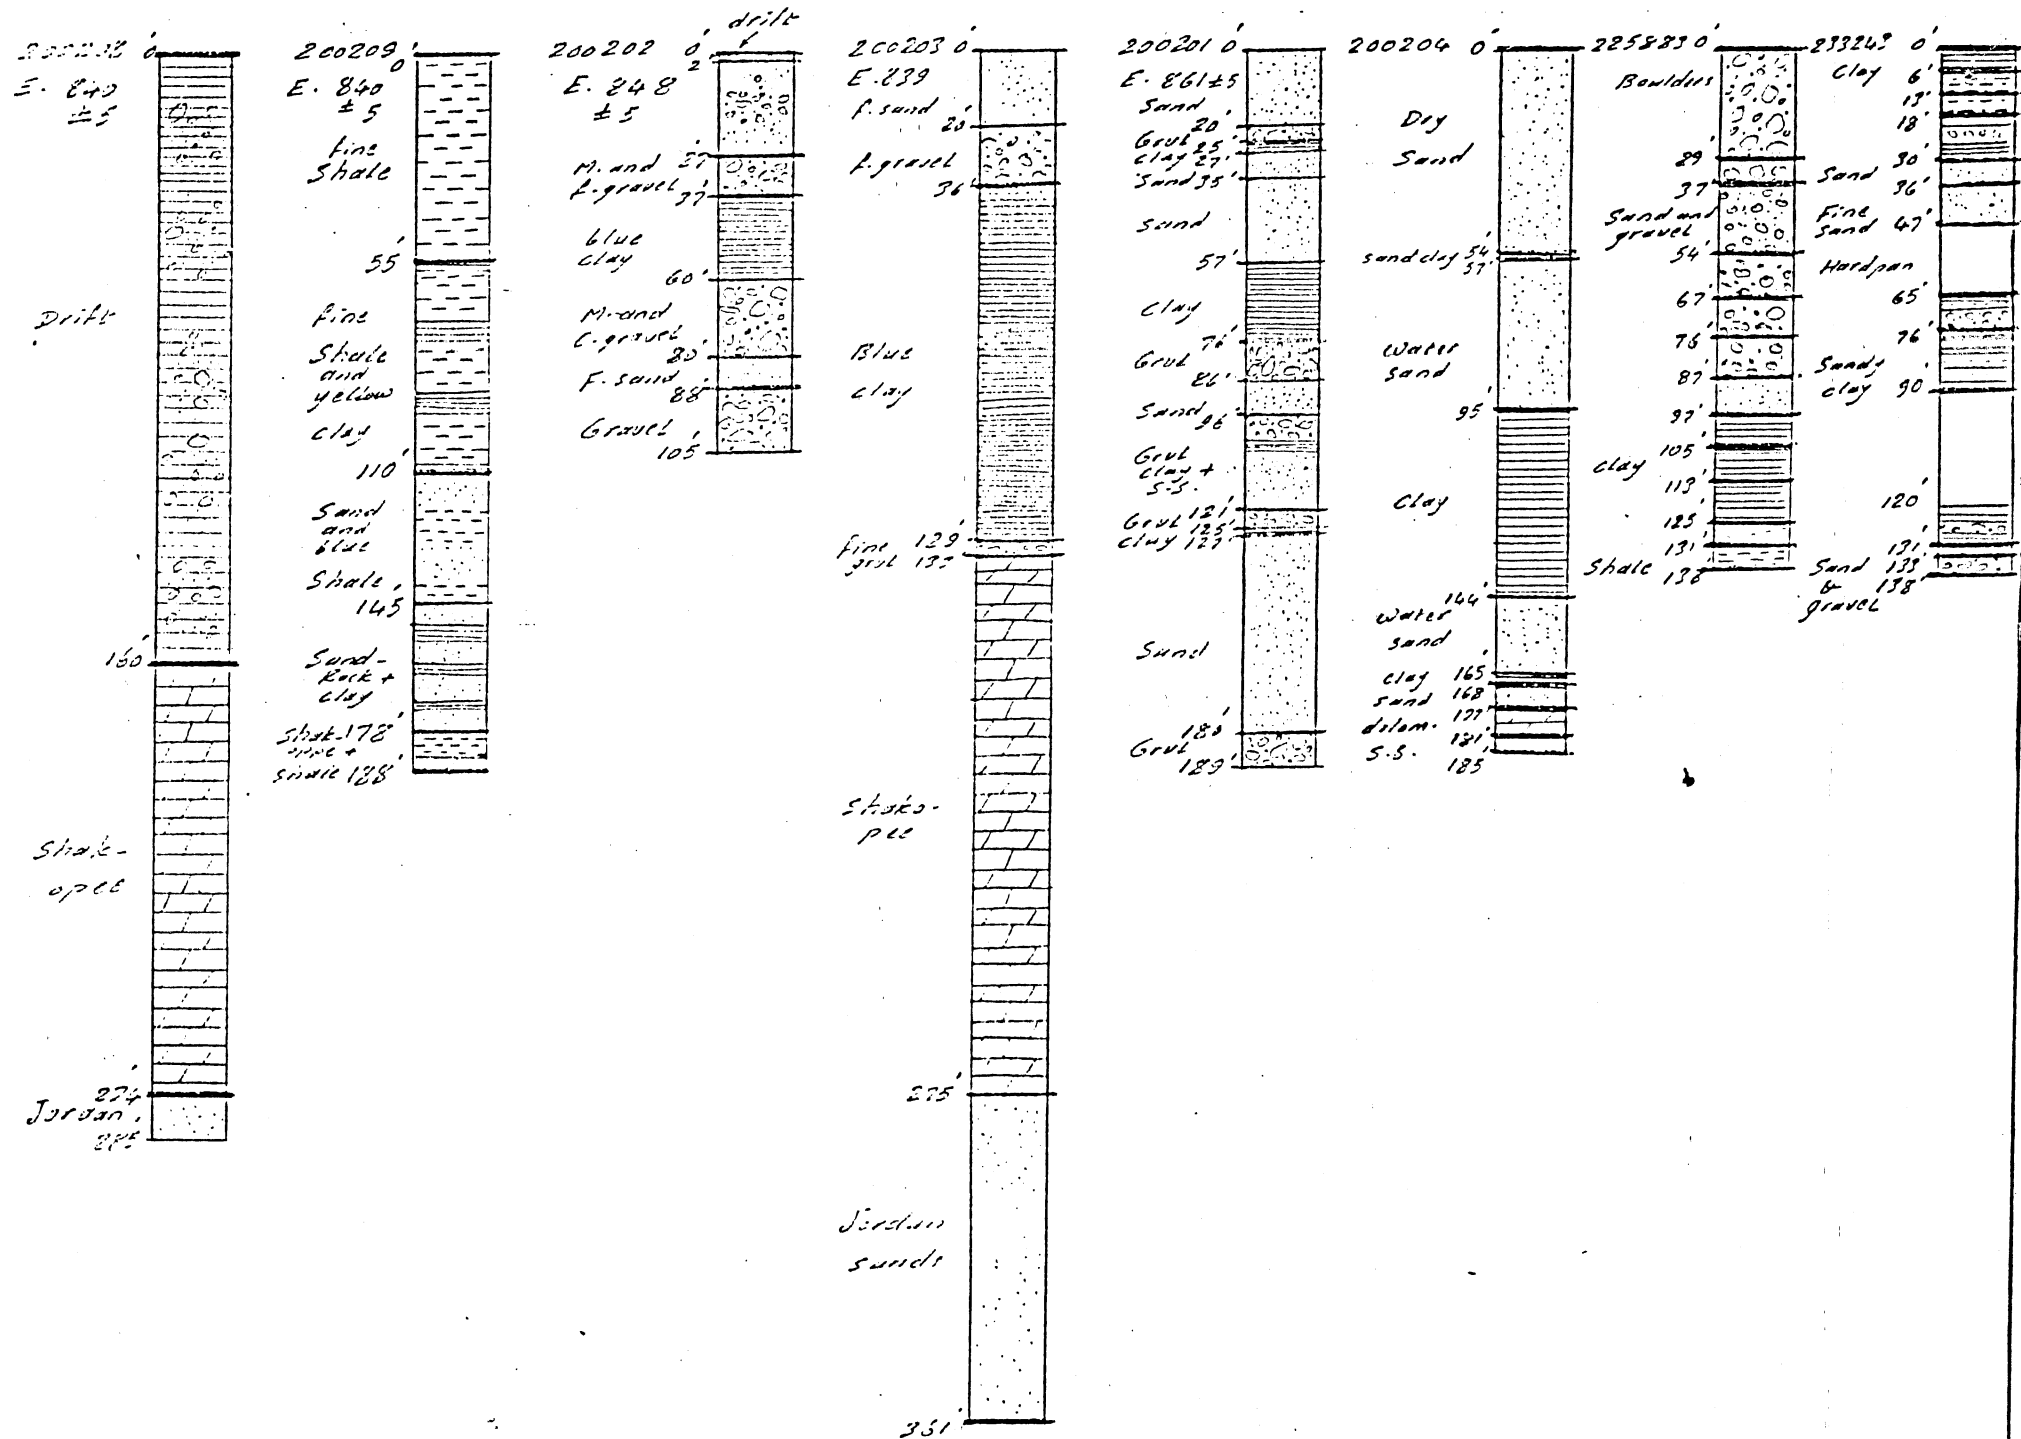 0'
E. 840
± 5
Drift
160'
Shak-
opee
274'
Jordan
285
200209 0'
E. 840
± 5
fine
Shale
55'
fine
Shale
and
yellow
clay
110'
Sand
and
blue
Shale
145'
Sand-
Rock +
clay
Shak- 178'
oppe +
shale 188'
drift
200202 0'
2
E. 848
± 5
27'
M. and
f. gravel 37'
blue
clay
60'
M. and
C. gravel
80'
F. sand
88'
Gravel
105'
200203 0'
E. 839
f. sand
20'
f. gravel
36'
Blue
clay
fine 129'
grvl 133'
Shako-
pee
275'
Jordan
sands
361'
200201 0'
E. 861±5
Sand
20'
Grvl 25'
clay 27'
Sand 35'
sand
57'
Clay
76'
Grvl
86'
Sand
96'
Grvl
clay +
S.S.
Grvl 121'
125'
clay 127'
Sand
180'
Grvl
189'
200204 0'
Dry
Sand
sand clay 54'
57'
water
sand
95'
Clay
144'
water
sand
clay 165'
sand 168'
dolom. 177'
181'
S.S.
185
225883 0'
Boulders
29'
37'
Sand and
gravel
54'
67'
76'
87'
97'
105'
clay
113'
125'
131'
Shale 136'
233243 0'
Clay 6'
13'
18'
30'
Sand
36'
Fine
sand 47'
Hardpan
65'
76'
Sandy
clay 90'
120'
131'
Sand 133'
&
138'
gravel